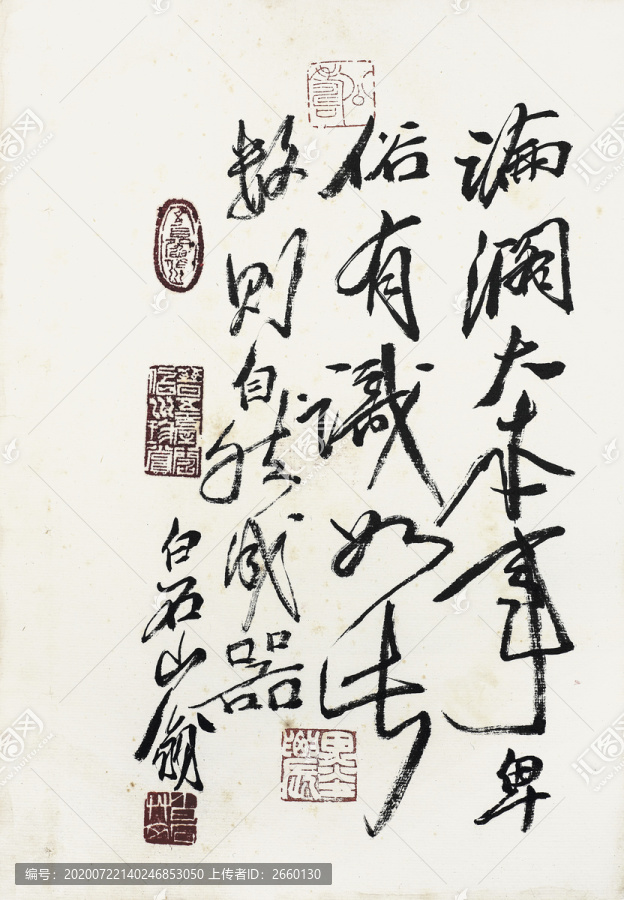 論濶大本事卑
俗有識如
数则自然成器
白石山翁
编号：20200722140246853050 上传者ID：2660130